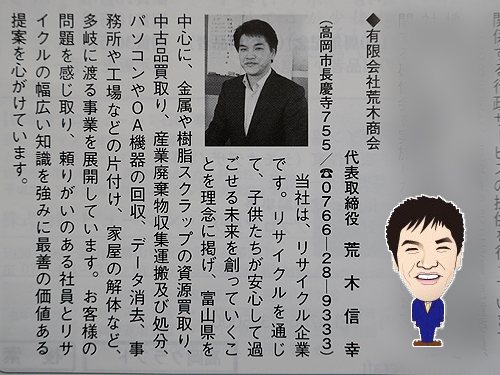 ◆有限会社荒木商会
代表取締役 荒木信幸
(高岡市長慶寺755/☎0766―28―9333)
当社は、リサイクル企業
です。リサイクルを通じ
て、子供たちが安心して過
ごせる未来を創っていくこ
とを理念に掲げ、富山県を
中心に、金属や樹脂スクラップの資源買取り、
中古品買取り、産業廃棄物収集運搬及び処分、
パソコンやOA機器の回収、データ消去、事
務所や工場などの片付け、家屋の解体など、
多岐に渡る事業を展開しています。お客様の
問題を感じ取り、頼りがいのある社員とリサ
イクルの幅広い知識を強みに最善の価値ある
提案を心がけています。